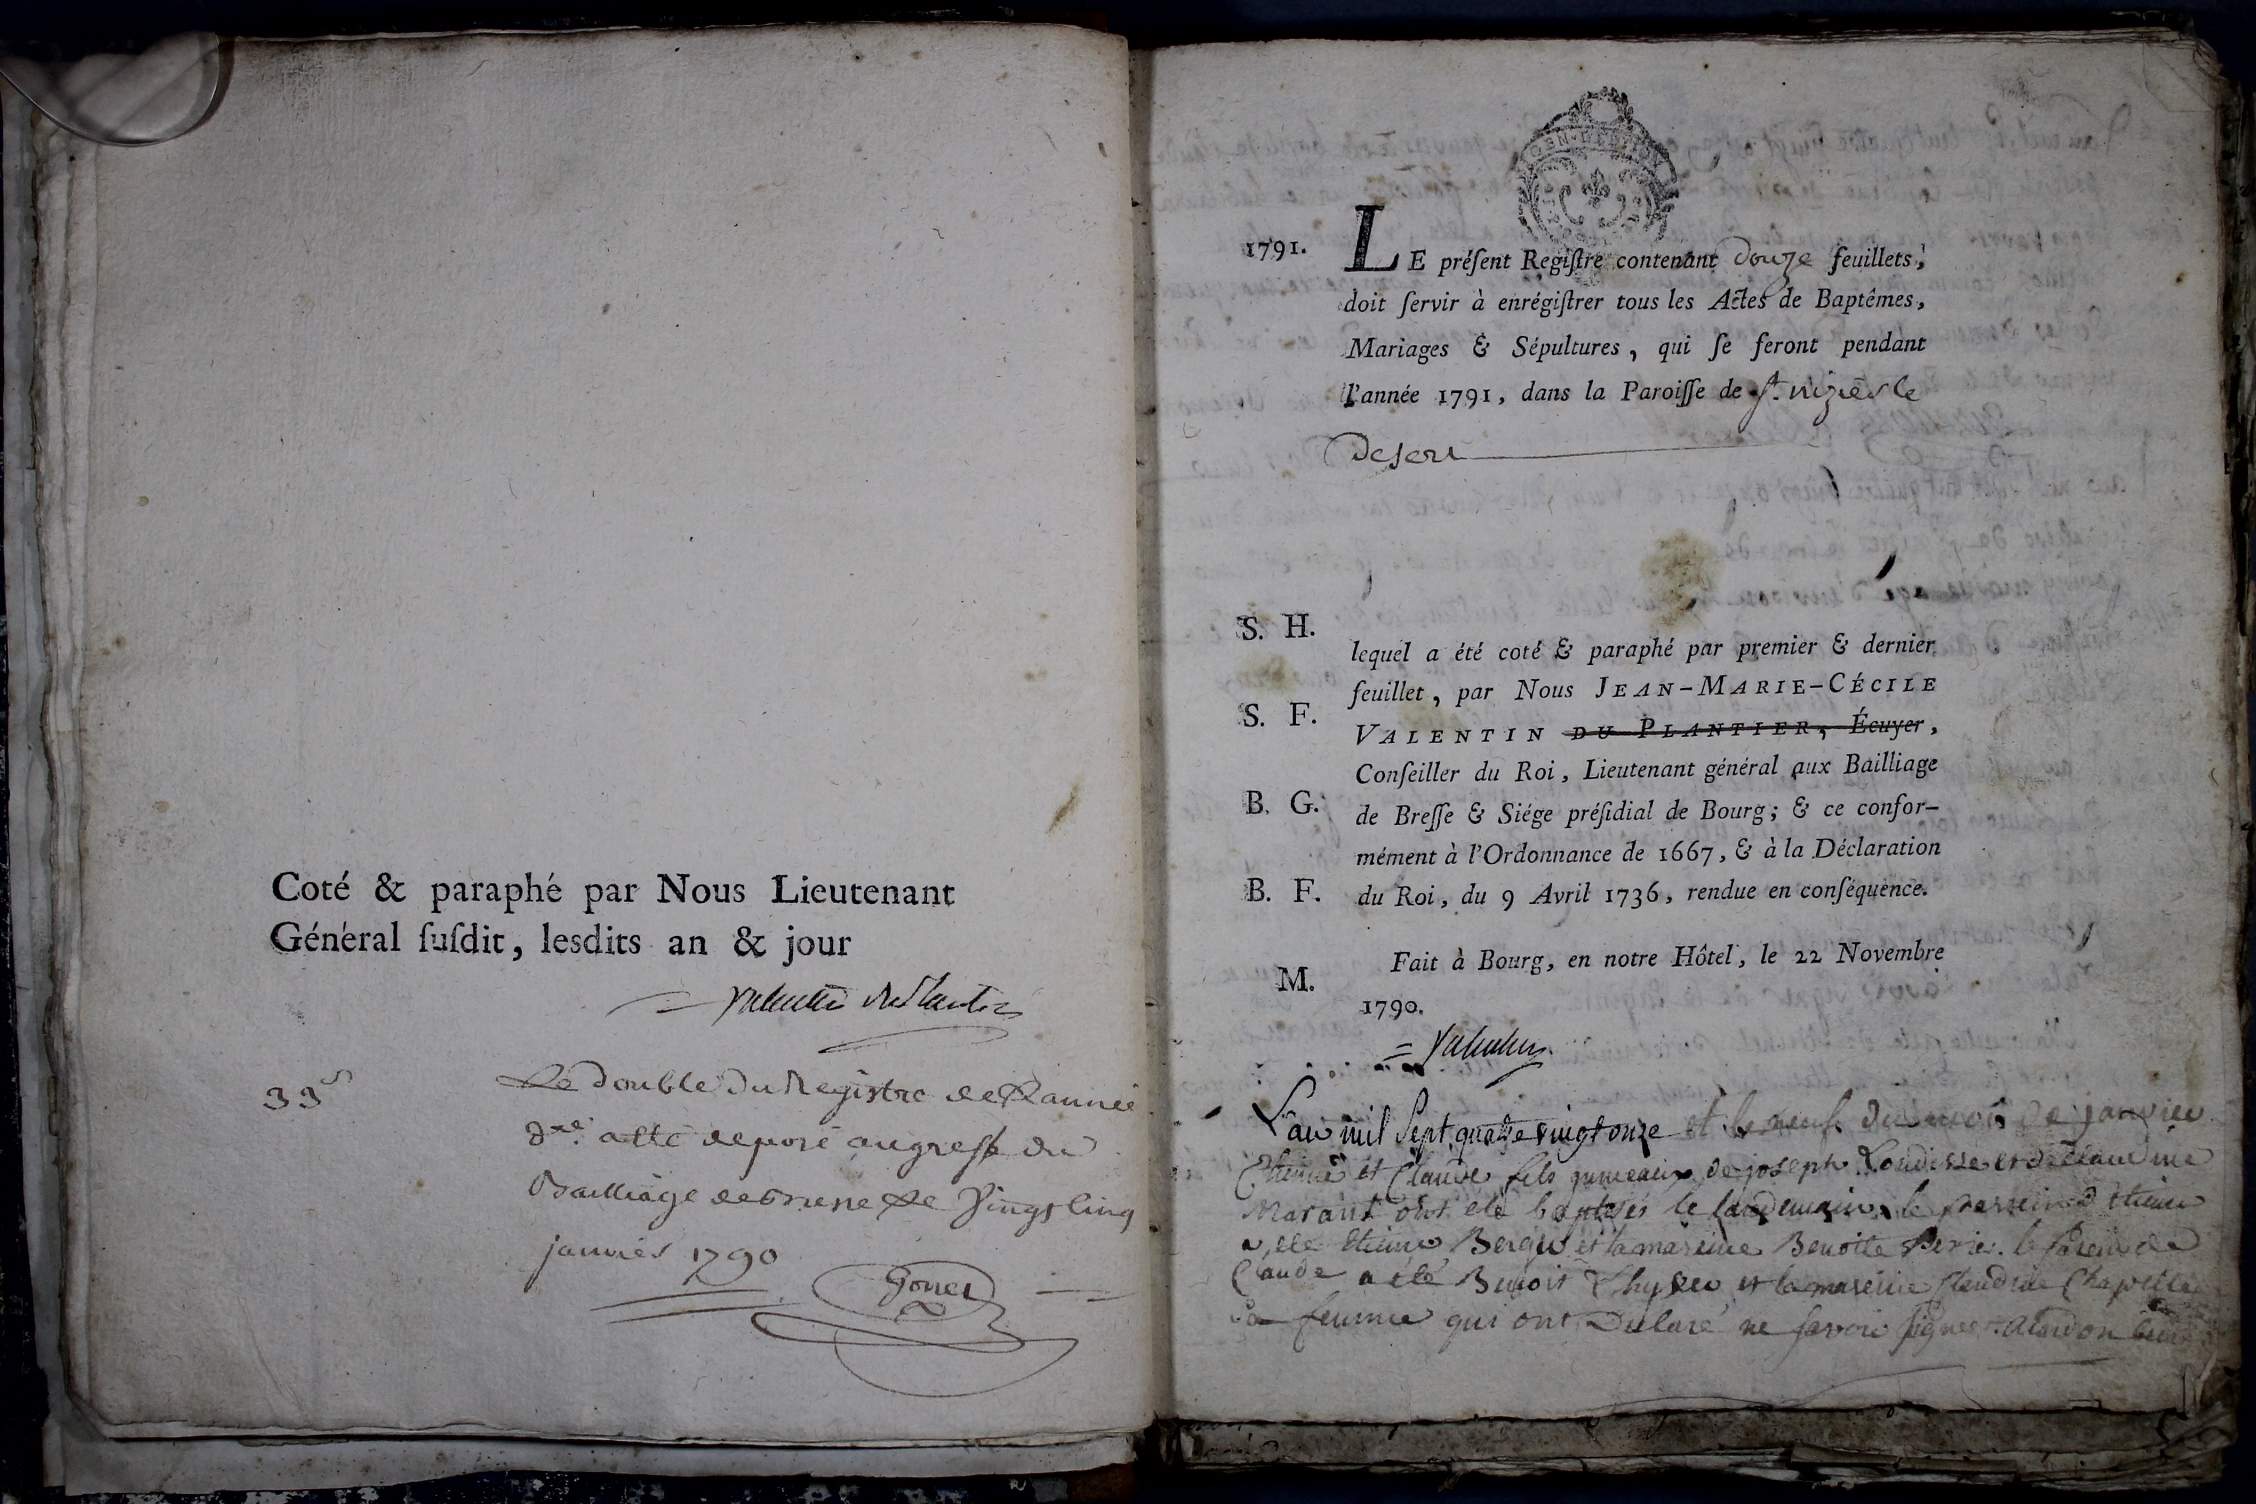 Coté & paraphé par Nous Lieutenant
Général ſuſdit, lesdits an & jour
33
Le double du Registre de L'année
a été deposé au greffe du
Bailliage de Bresse le vingt cinq
janvier 1790
1791.
LE préſent Regiſtre contenant Douze feuillets,
doit ſervir à enrégiſtrer tous les Actes de Baptêmes,
Mariages & Sépultures, qui ſe feront pendant
l'année 1791, dans la Paroiſſe de St. nizier le
Desert
S. H.
lequel a été coté & paraphé par premier & dernier
feuillet, par Nous JEAN-MARIE-CÉCILE
S. F.
VALENTIN DU PLANTIER, Écuyer,
Conſeiller du Roi, Lieutenant général aux Bailliage
B. G.
de Breſſe & Siége préſidial de Bourg; & ce confor-
mément à l'Ordonnance de 1667, & à la Déclaration
B. F.
du Roi, du 9 Avril 1736, rendue en conſéquence.
M.
Fait à Bourg, en notre Hôtel, le 22 Novembre
1790.
Valentin
L'an mil sept quatre vingt onze et le neuf du mois de janvier
Etienne et Claude fils jumeaux de joseph et de claudine
ont été baptisés le landemain le parrein d'Etienne
a été etienne et la mareine Benoite le parein de
Claude a été Benoit et la mareine Claudine
sa femme qui ont Declaré ne savoir signer